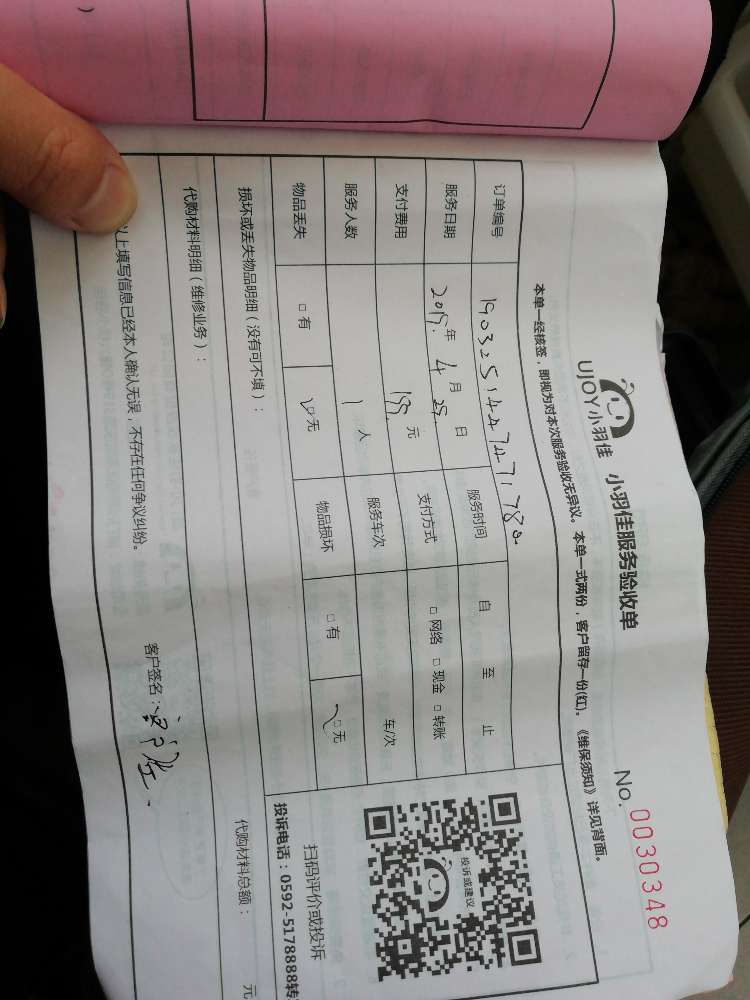 UJOY小羽佳 小羽佳服务验收单
No. 0030348
本单一经核签，即视为对本次服务验收无异议。本单一式两份，客户留存一份(红)。《维保须知》详见背面。
订单编号
服务日期 年 4 月 日 服务时间 自 至 止
支付费用 元 支付方式 □ 网络 □ 现金 □ 转账
服务人数 1 人 服务车次 车/次
物品丢失 □ 有 □ 无 物品损坏 □ 有 □ 无
投诉或建议
扫码评价或投诉
投诉电话：0592-5178888转
损坏或丢失物品明细（没有可不填）：
代购材料明细（维修业务）：
代购材料总额： 元
以上填写信息已经本人确认无误，不存在任何争议纠纷。
客户签名：